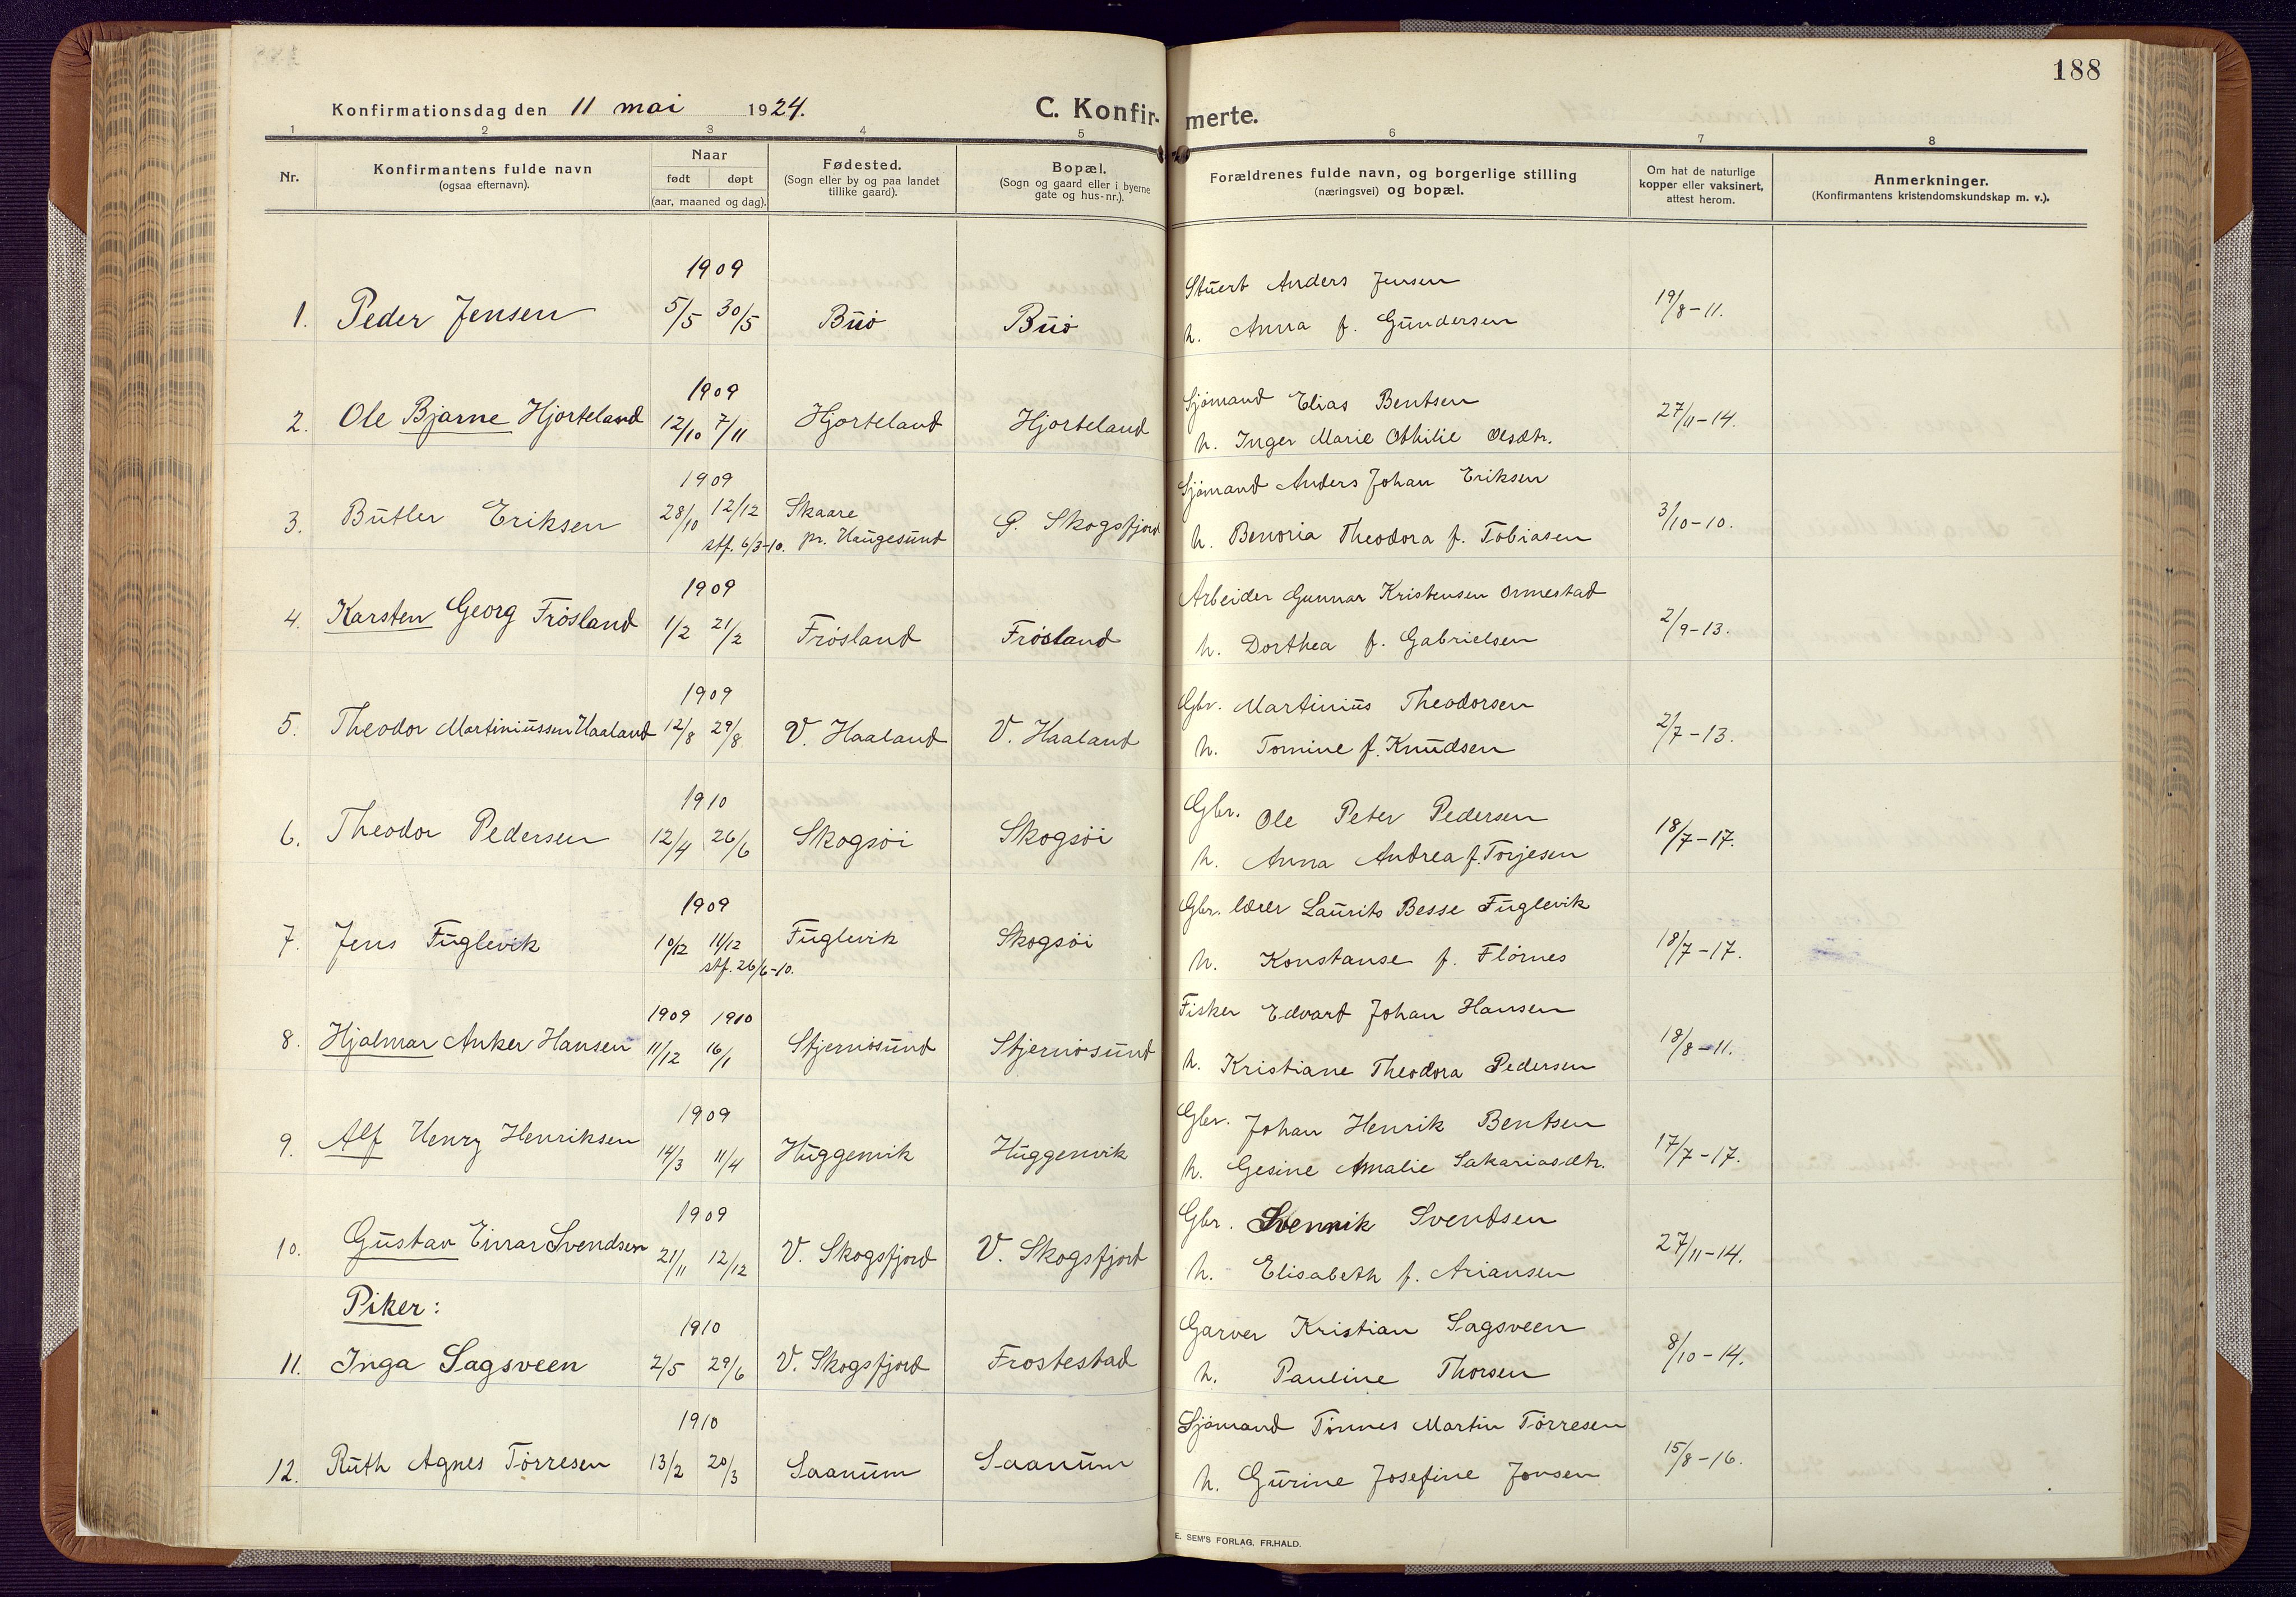 188
Konfirmationsdag den 11 mai 1924.
C. Konfir- merte.
1 2 3 4 5 6 7 8
Nr.
Konfirmantens fulde navn
(ogsaa efternavn).
Naar
født døpt
(aar, maaned og dag).
Fødested.
(Sogn eller by og paa landet
tillike gaard).
Bopæl.
(Sogn og gaard eller i byerne
gate og hus-nr.).
Forældrenes fulde navn, og borgerlige stilling
(næringsvei) og bopæl.
Om hat de naturlige
kopper eller vaksinert,
attest herom.
Anmerkninger.
(Konfirmantens kristendomskundskap m. v.).
1909 Stuert Anders Jensen
1. Peder Jensen 5/5 30/5 Büö Büö h. Anna f. Gündersen 19/8-11.
1909 Sjömand Elias Bentsen
2. Ole Bjarne Hjorteland 12/10 7/11 Hjorteland Hjorteland h. Inger Marie Othilie Olsdtr. 27/11-14.
1909 Sjömand Anders Johan Eriksen
3. Bütler Eriksen 28/10 12/12 Skaare G. Skogsfjord h. Benoria Theodora f. Tobiasen 3/10-10.
stf. 6/3-10. pr. Haugesünd
1909 Arbeider Gunnar Kristensen Ormestad
4. Karsten Georg Frösland 1/2 21/2 Frösland Frösland h. Dorthea f. Gabrielsen 2/9-13.
1909 Gbr. Martinius Theodorsen
5. Theodor Martiniussen Haaland 12/8 29/8 V. Haaland V. Haaland h. Tomine f. Knüdsen 2/7-13.
1910 Gbr. Ole Peter Pedersen
6. Theodor Pedersen 12/4 26/6 Skogsöi Skogsöi h. Anna Andrea f. Torjesen 18/7-17.
1909 Gbr. lærer Laurits Besse Füglevik
7. Jens Füglevik 10/12 11/12 Füglevik Skogsöi h. Konstanse f. Flörnes 18/7-17.
stf. 26/6-10.
1909 1910 Fisker Edvard Johan Hansen
8. Hjalmar Anker Hansen 11/12 16/1 Stjernösünd Stjernösünd h. Kristiane Theodora Pedersen 18/8-11.
1909 Gbr. Johan Henrik Bentsen
9. Alf Henry Henriksen 14/3 11/4 Hüggenvik Hüggenvik h. Gesine Amalie Sakariasdtr. 17/7-17.
1909 Gbr. Svennik Svendsen
10. Güstav Einar Svendsen 21/11 12/12 V. Skogsfjord V. Skogsfjord h. Elisabeth f. Ariansen 27/11-14.
Piker:
1910 Garver Kristian Sagsveen
11. Inga Sagsveen 2/5 29/6 V. Skogsfjord Frostestad h. Pauline Thorsen 8/10-14.
1910 Sjömand Tönnes Martin Törresen
12. Rüth Agnes Törresen 13/2 20/3 Saanüm Saanüm h. Gürine Josefine Jonsen 15/8-16.
E. SEM'S FORLAG. FR.HALD.